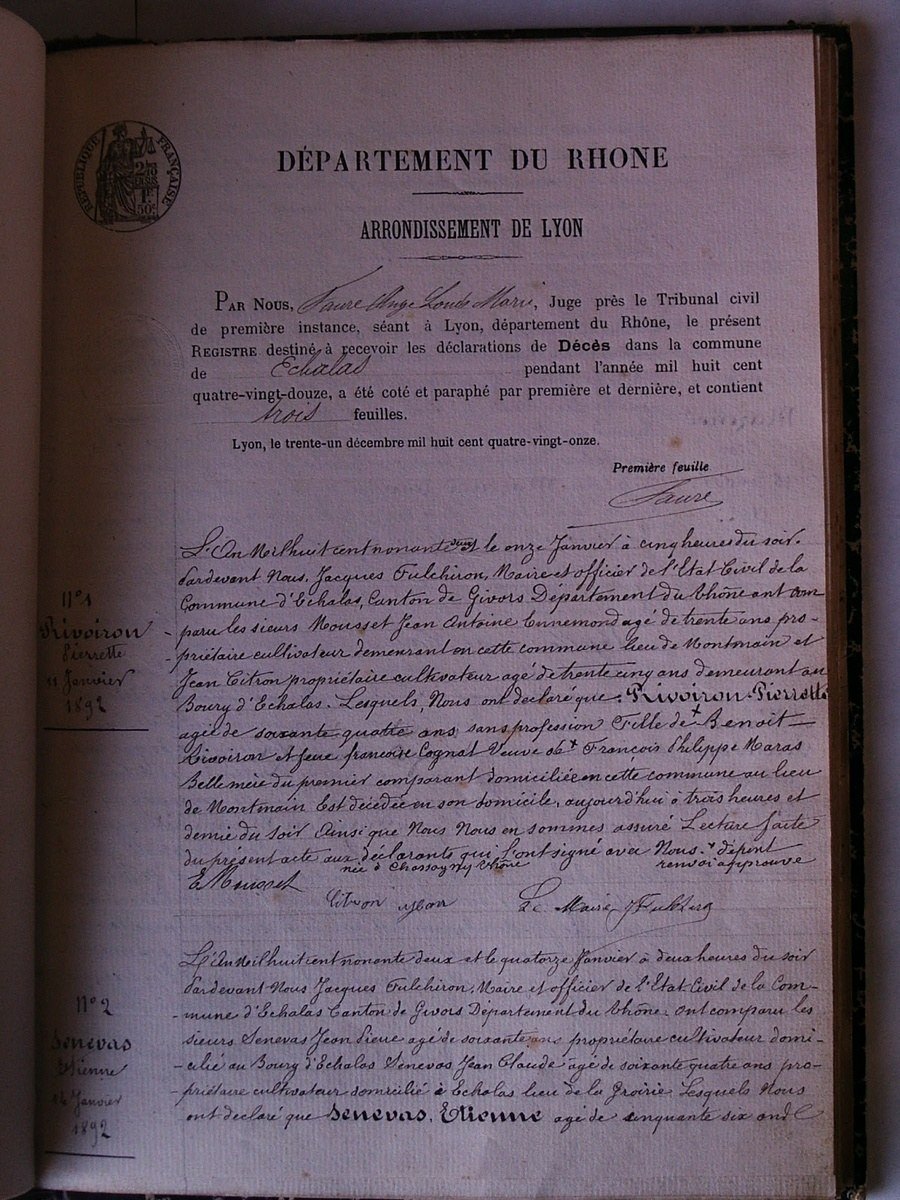 RÉPUBLIQUE FRANÇAISE
50c
DÉPARTEMENT DU RHONE
ARRONDISSEMENT DE LYON
PAR NOUS, Faure Ange Louis Marie, Juge près le Tribunal civil
de première instance, séant à Lyon, département du Rhône, le présent
REGISTRE destiné à recevoir les déclarations de Décès dans la commune
de Echalas pendant l'année mil huit cent
quatre-vingt-douze, a été coté et paraphé par première et dernière, et contient
trois feuilles.
Lyon, le trente-un décembre mil huit cent quatre-vingt-onze.
Première feuille
Faure
N°1
Rivoiron
Pierrette
11 Janvier
1892
L'An Mil huit cent nonante deux et le onze Janvier à cinq heures du soir.
Pardevant Nous, Jacques Fulchiron, Maire et officier de l'Etat Civil de la
Commune d'Echalas, Canton de Givors Département du Rhône ont com
paru les sieurs Mousset Jean Antoine Ennemond agé de trente ans pro-
- priétaire cultivateur demeurant en cette commune lieu de Montmain et
Jean Citron propriétaire cultivateur agé de trente cinq ans demeurant au
Bourg d'Echalas. Lesquels, Nous ont declaré que : Rivoiron Pierrette
agée de soixante quatre ans sans profession Fille de + Benoit
Rivoiron et feue francoise Cognat Veuve de + Francois Philippe Maras
Belle mère du premier comparant domiciliée en cette commune au lieu
de Montmain Est décédée en son domicile, aujourd'hui à trois heures et
demie du soir Ainsi que Nous Nous en sommes assuré Lecture faite
du présent acte aux déclarants qui l'ont signé avec Nous. + défunt
née à Chassagny Rhône renvoi approuvé
E Mousset
Citron Jean Le Maire J Fulchiron
N° 2
Senevas
Etienne
14 Janvier
1892
L'An Mil huit cent nonente deux et le quatorze Janvier à deux heures du soir
Pardevant Nous Jacques Fulchiron, Maire et officier de l'Etat Civil de la Com-
- mune d'Echalas Canton de Givors Département du Rhône. Ont comparu les
sieurs Senevas Jean Pierre agé de soixante ans propriétaire cultivateur domi-
- cilié au Bourg d'Echalas Senevas Jean Claude agé de soixante quatre ans pro-
- priétaire cultivateur domicilié à Echalas lieu de la Lesquels Nous
ont declaré que Senevas, Etienne agé de cinquante six ans